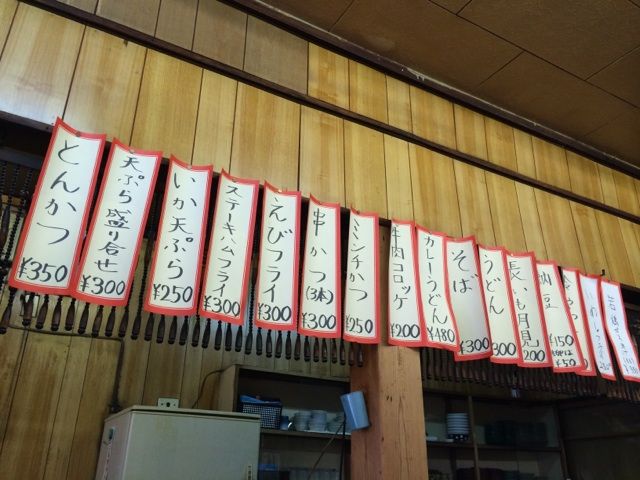 とんかつ
¥350
天ぷら盛り合せ
¥300
いか天ぷら
¥250
ステーキハムフライ
¥300
えびフライ
¥300
串かつ(3本)
¥300
ミンチかつ
¥250
牛肉コロッケ
¥200
カレーうどん
¥480
そば
¥300
うどん
¥300
長いも月見
200
納豆
¥150